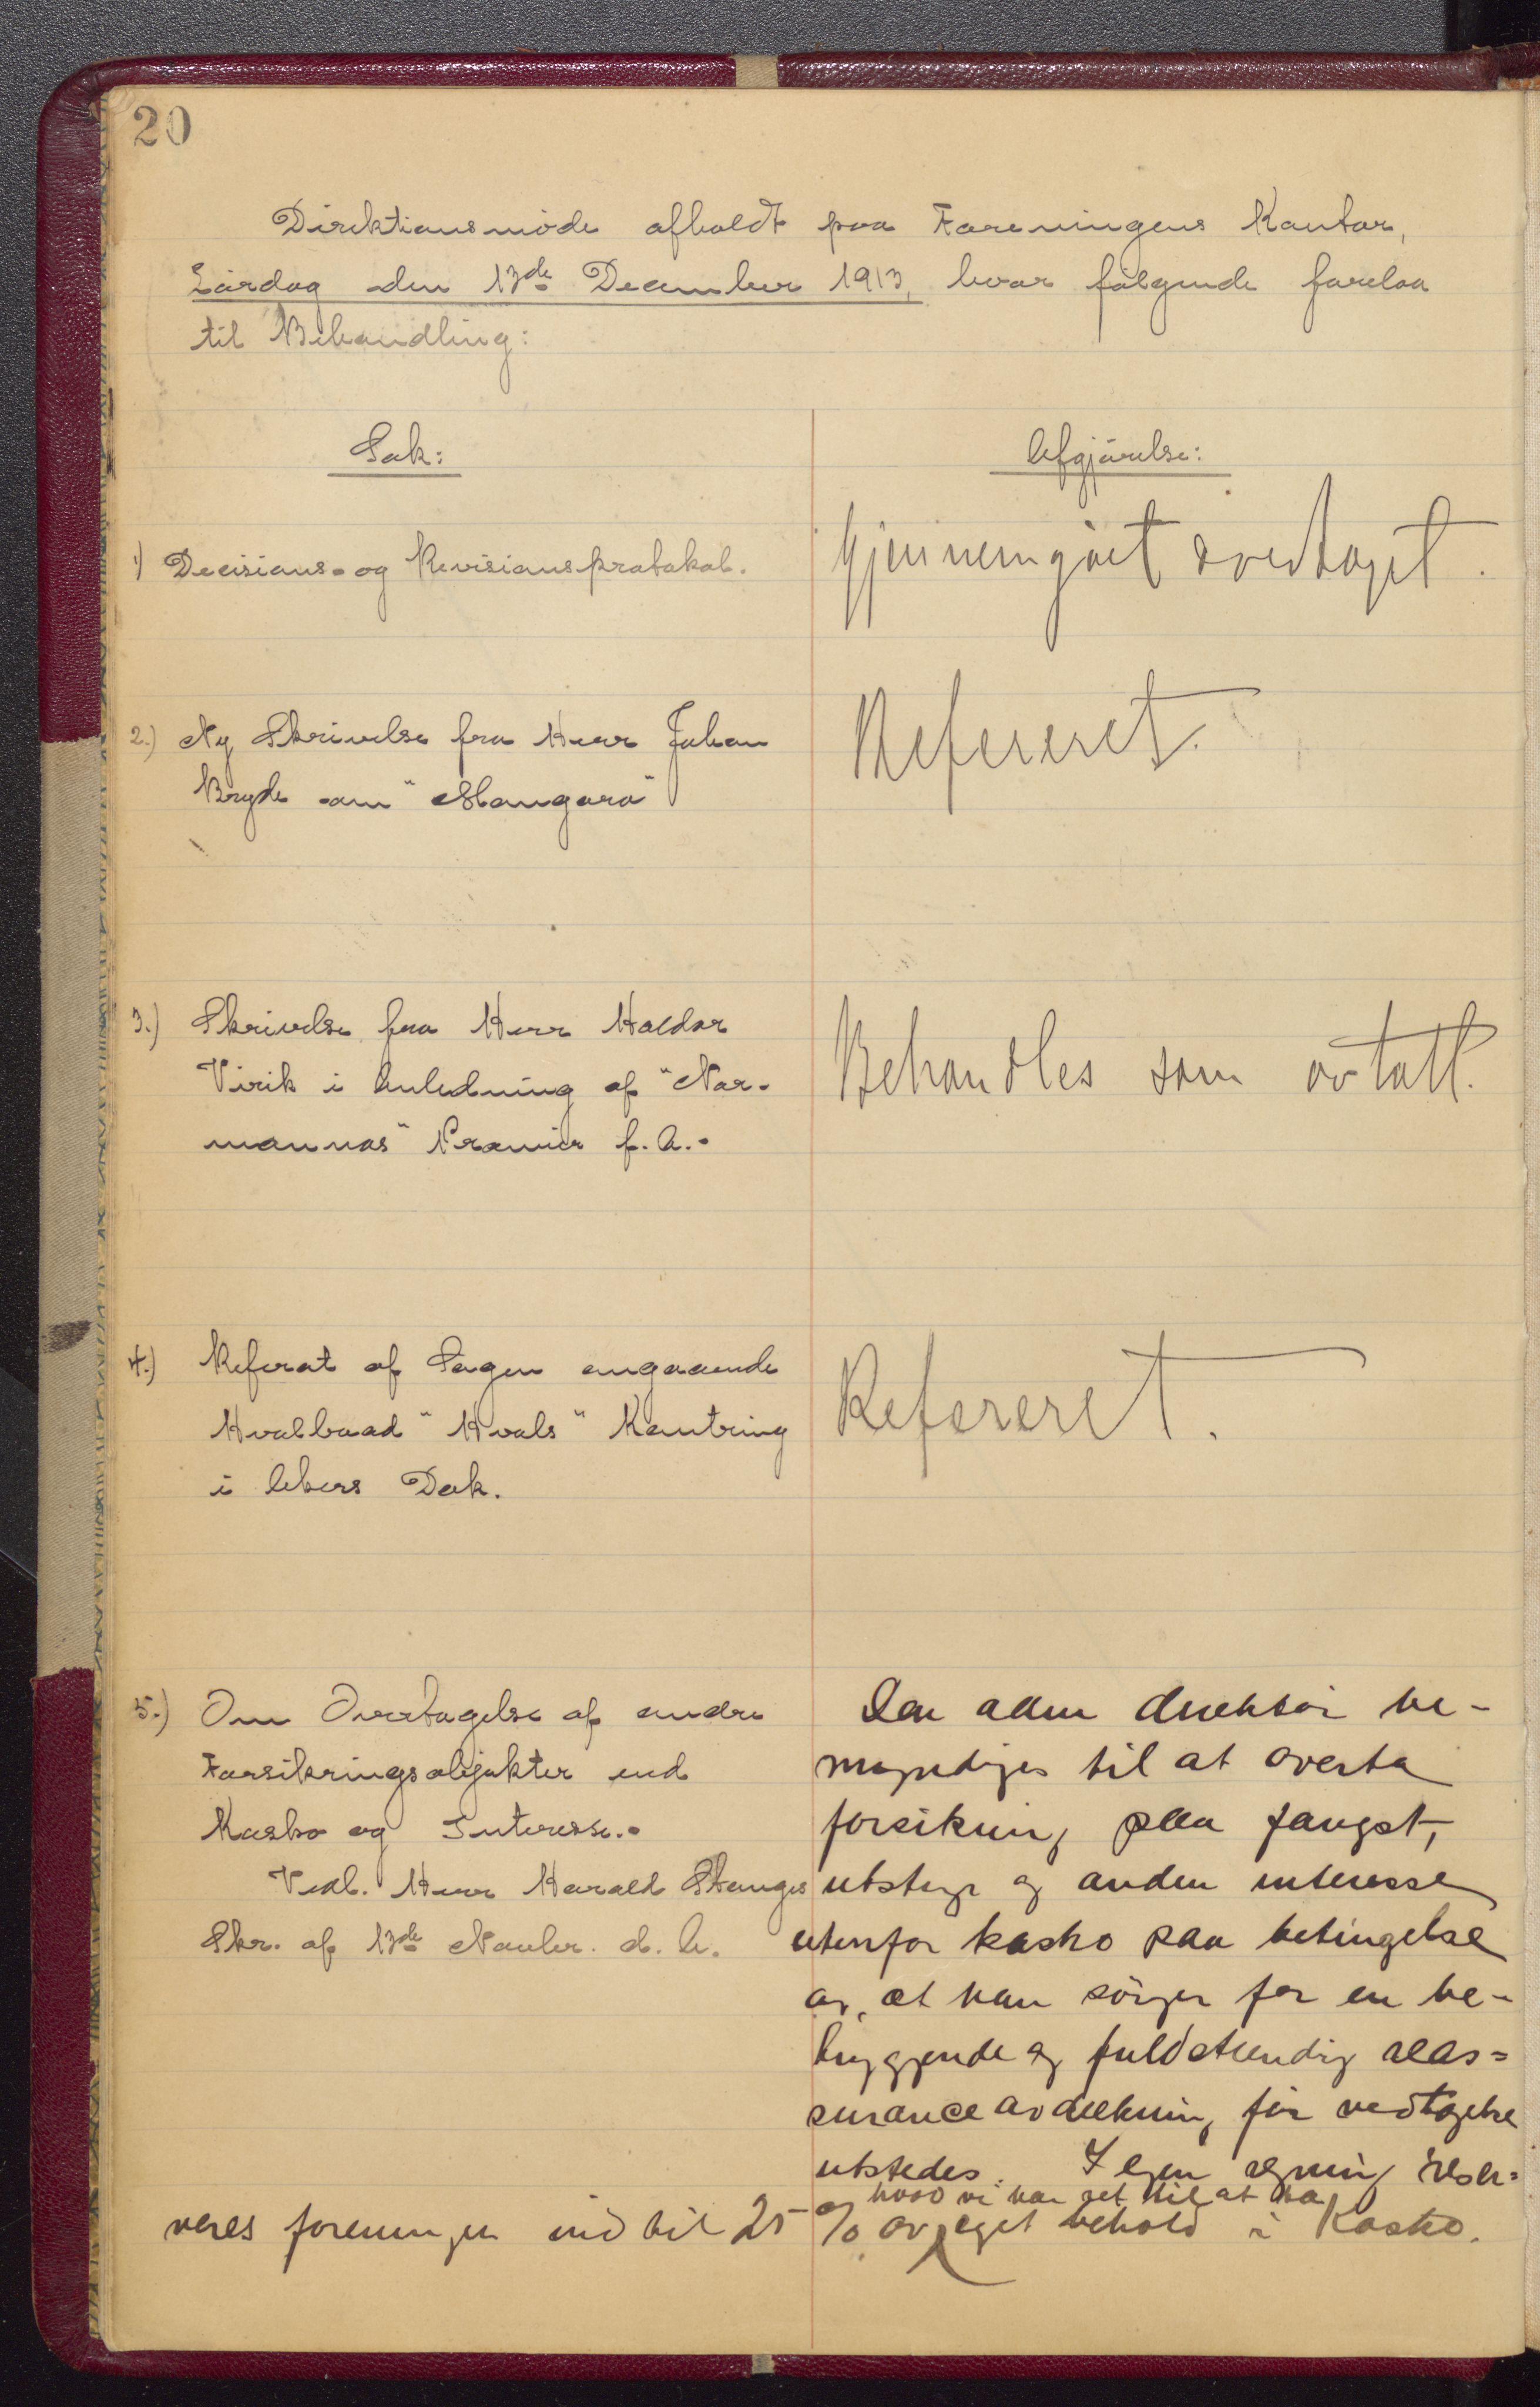 20
Direktionsmöde afholdt paa Foreningens Kontor,
Lördag den 13de December 1913, hvor fölgende forelaa
til Behandling:
Sak:
Afgjörelse:
1) Decisions- og Revisionsprotokol.
Gjennemgået & vedtaget.
2.) Ny Skrivelse fra Herr Johan
Bryde om "Mangara"
Refereret.
3.) Skrivelse fra Herr Haldor
Virik i Anledning af "Nor-
mannas" Præmier f. A.-
Behandles som avtalt.
4.) Referat af Sagen angaaende
Hvalbaad "Hvals" Kantring
i Akers Dok.
Refereret.
5.) Om Overtagelse af andre
Forsikringsobjekter end
Kasko og Interesse.-
Vedl. Herr Harald Stanges
Skr. af 13de Novbr. d. A.
Den adm direktör be-
myndiges til at overta
forsikring paa fangst,
utstyr og anden interesse
utenfor kasko paa betingelse
av, at han sörger for en be-
tryggende og fuldstændig reas=
surance avdækning för vedtagelse
utstedes. I egen regning reser=
hvad vi har ret til at ha
veres foreningen ind til 25 % av eget behold i Kasko.